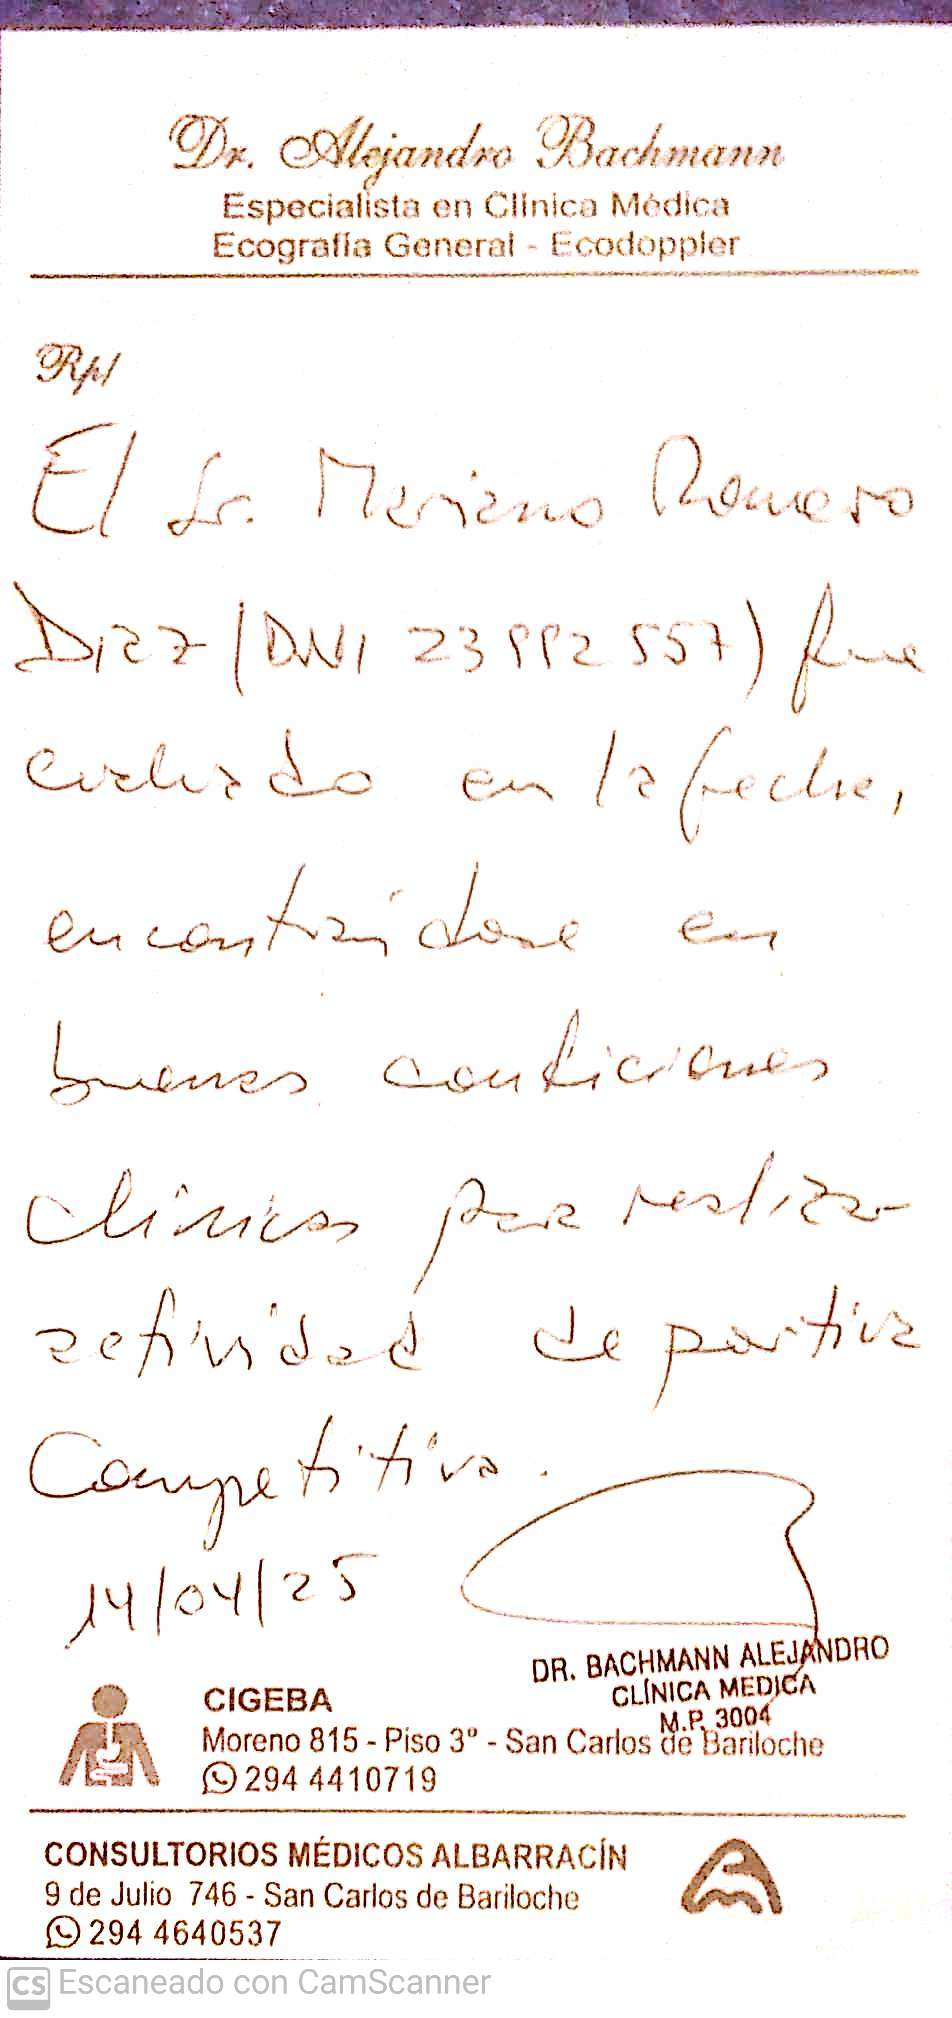 Dr. Alejandro Bachmann
Especialista en Clínica Médica
Ecografía General - Ecodoppler
Rp/
El Sr. Mariano Romero
Diaz (DNI 23992557) fue
evaluado en la fecha,
encontrándose en
buenas condiciones
clínicas para realizar
actividad deportiva
competitiva.
14/04/25
DR. BACHMANN ALEJANDRO
CLÍNICA MEDICA
M.P. 3004
CIGEBA
Moreno 815 - Piso 3º - San Carlos de Bariloche
294 4410719
CONSULTORIOS MÉDICOS ALBARRACÍN
9 de Julio 746 - San Carlos de Bariloche
294 4640537
CS Escaneado con CamScanner